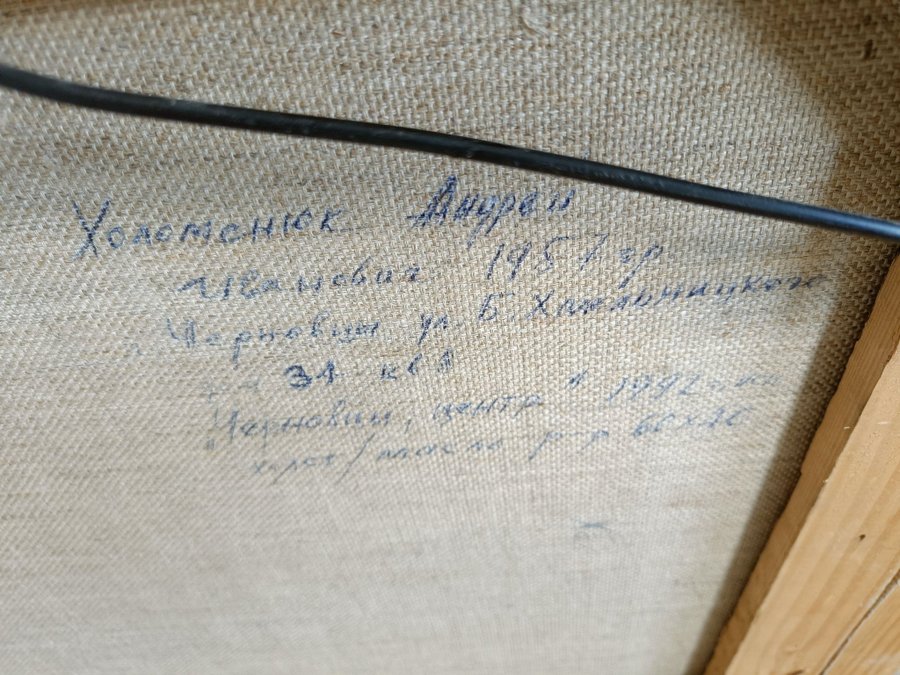 Холоменюк Андрей
Иванович 1957 гр
Черновцы ул. Б. Хмельницкого
д 31 кв 8
"Черновцы, центр" 1992 г.
холст/масло р-р 60х